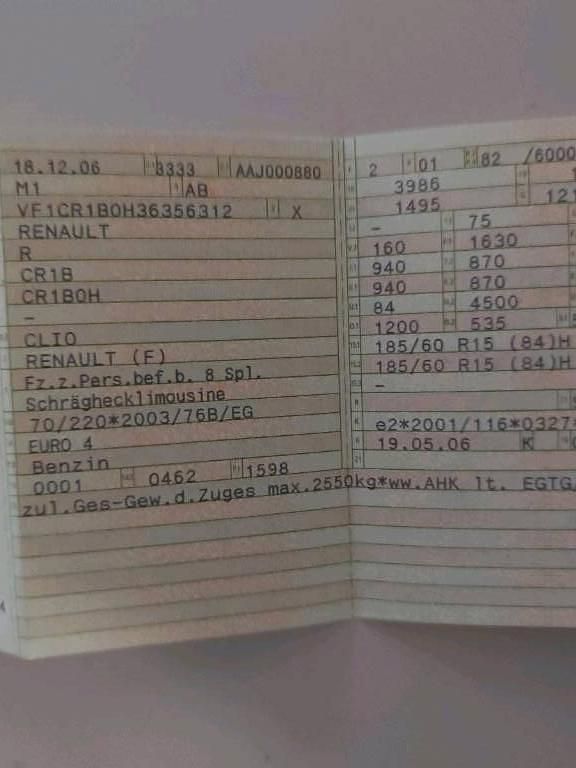 18.12.06 3333 AAJ000880
M1 AB
VF1CR1B0H36356312 X
RENAULT
R
CR1B
CR1B0H
–
CLIO
RENAULT (F)
Fz.z.Pers.bef.b. 8 Spl.
Schräghecklimousine
70/220*2003/76B/EG
EURO 4
Benzin
0001 0462 1598
zul.Ges-Gew.d.Zuges max.2550kg*ww.AHK lt. EGTG
2 01 82 /6000
3986
1495 121
– 75
160 1630
940 870
940 870
84 4500
1200 535
185/60 R15 (84)H
185/60 R15 (84)H
–
e2*2001/116*0327*
19.05.06 K